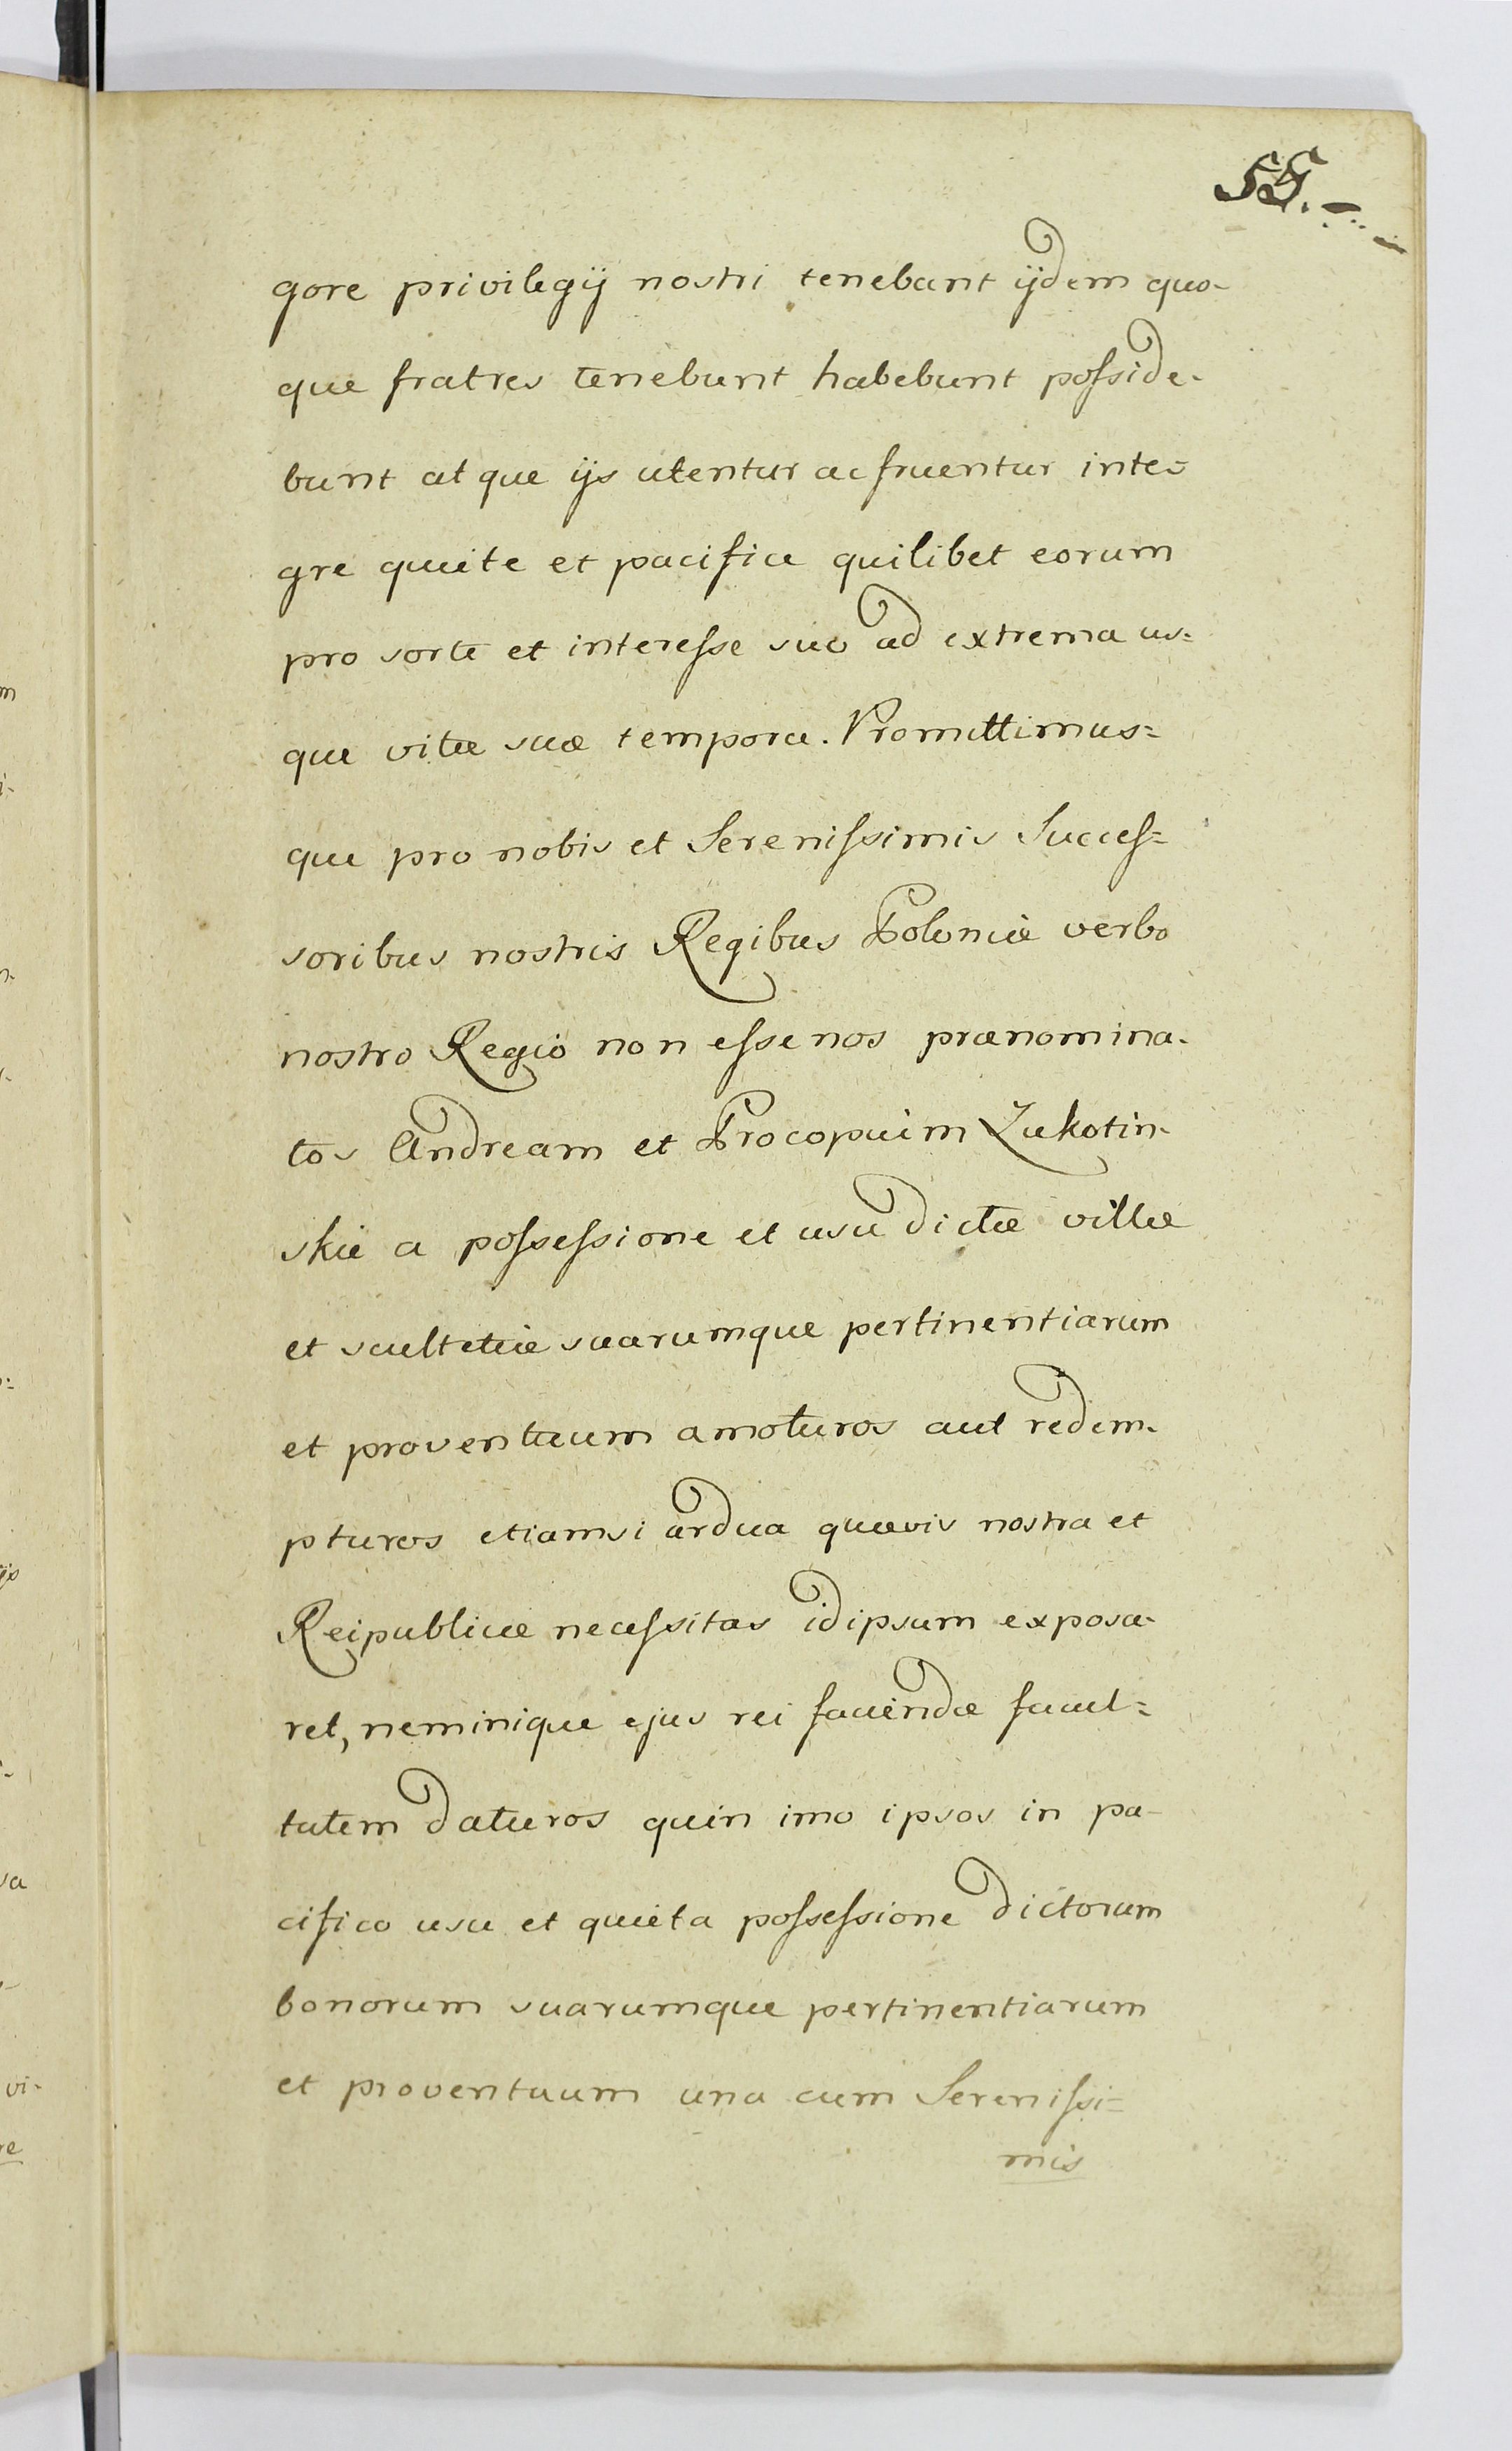 55.
gore privilegij nostri tenebant ijdem quo-
que fratres tenebunt habebunt posside-
bunt atque ijs utentur ac fruentur inte-
gre quiete et pacifice quilibet eorum
pro sorte et interesse suo ad extrema us-
que vitæ suæ tempora. Promittimus-
que pro nobis et Serenissimis Succes-
soribus nostris Regibus Poloniæ verbo
nostro Regio non esse nos prænomina-
tos Andream et Procopium Zukotin-
skie a possessione et usu dictæ villæ
et scultetiæ suarumque pertinentiarum
et proventuum amoturos aut redem-
pturos etiamsi ardua quævis nostra et
Reipublicæ necessitas idipsum exposce-
ret, neminique ejus rei faciendæ facul-
tatem daturos quin imo ipsos in pa-
cifico usu et quieta possessione dictorum
bonorum suarumque pertinentiarum
et proventuum una cum Serenissi-
mis